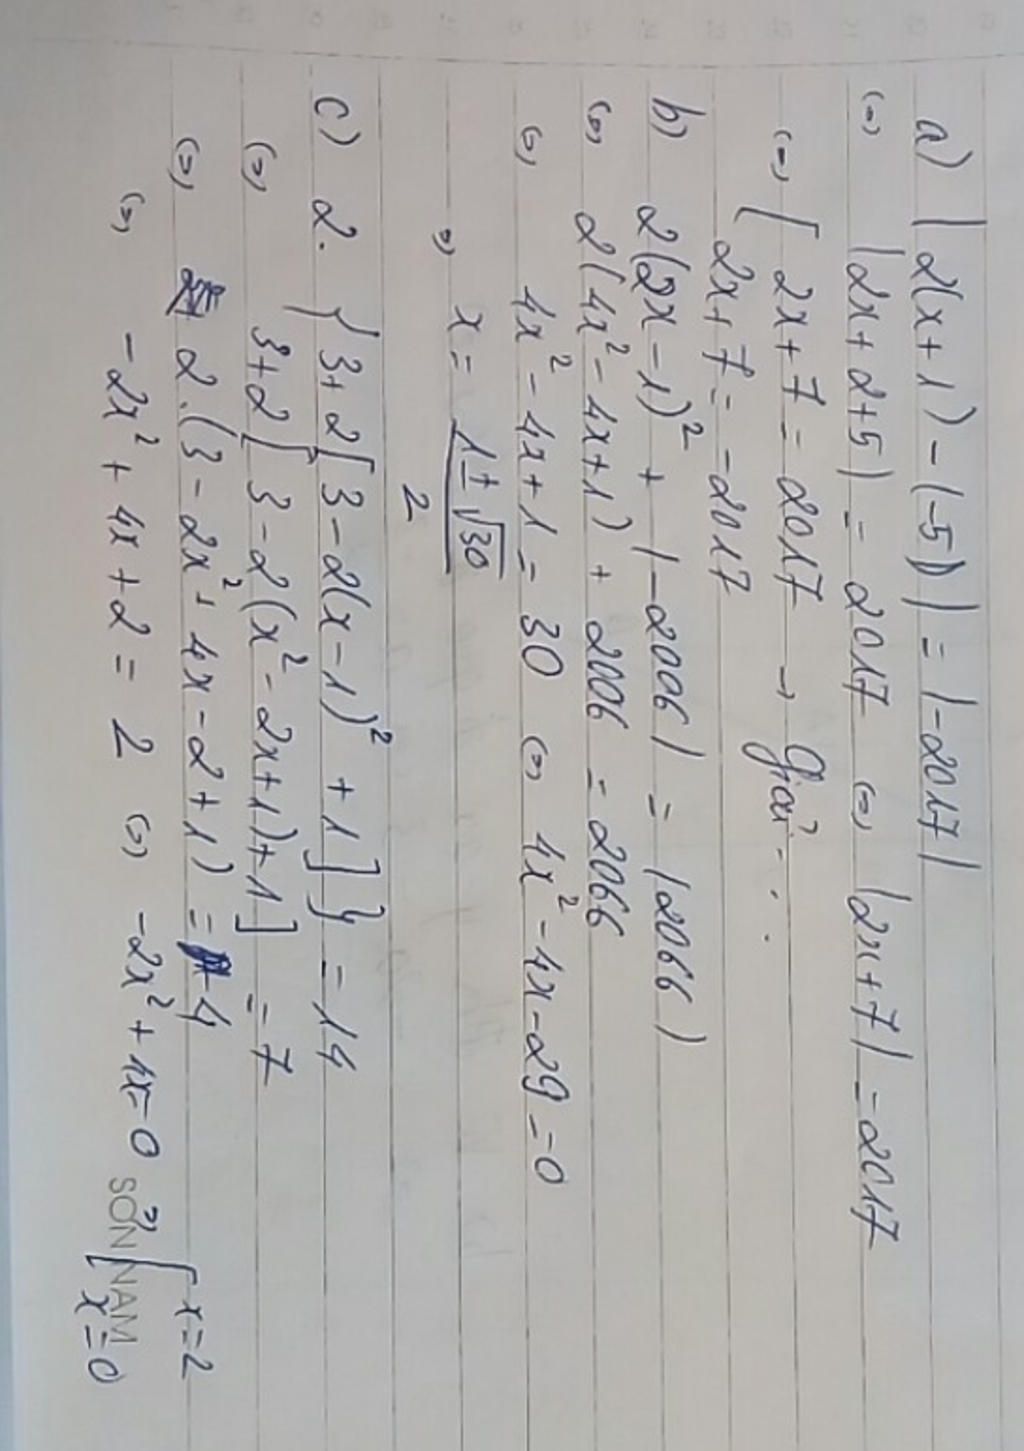 a) | 2(x+1) - (-5) | = |-2017|
(=) |2x+2+5| = 2017 (=) |2x+7| = 2017
(=) [ 2x+7 = 2017 → Giải...
2x+7 = -2017
b) 2(2x-1)² + |-2006| = |2066|
(=) 2(4x²-4x+1) + 2006 = 2066
(=) 4x²-4x+1 = 30 (=) 4x²-4x-29 = 0
=) x = (1±√30)/2
c) 2. { 3+2[ 3-2(x-1)² +1 ] } = 14
(=) 3+2[ 3-2(x²-2x+1)+1 ] = 7
(=) 2.(3-2x²+4x-2+1) = 4
(=) -2x²+4x+2 = 2 (=) -2x²+4x=0 =) [ x=2
x=0
SƠN NAM